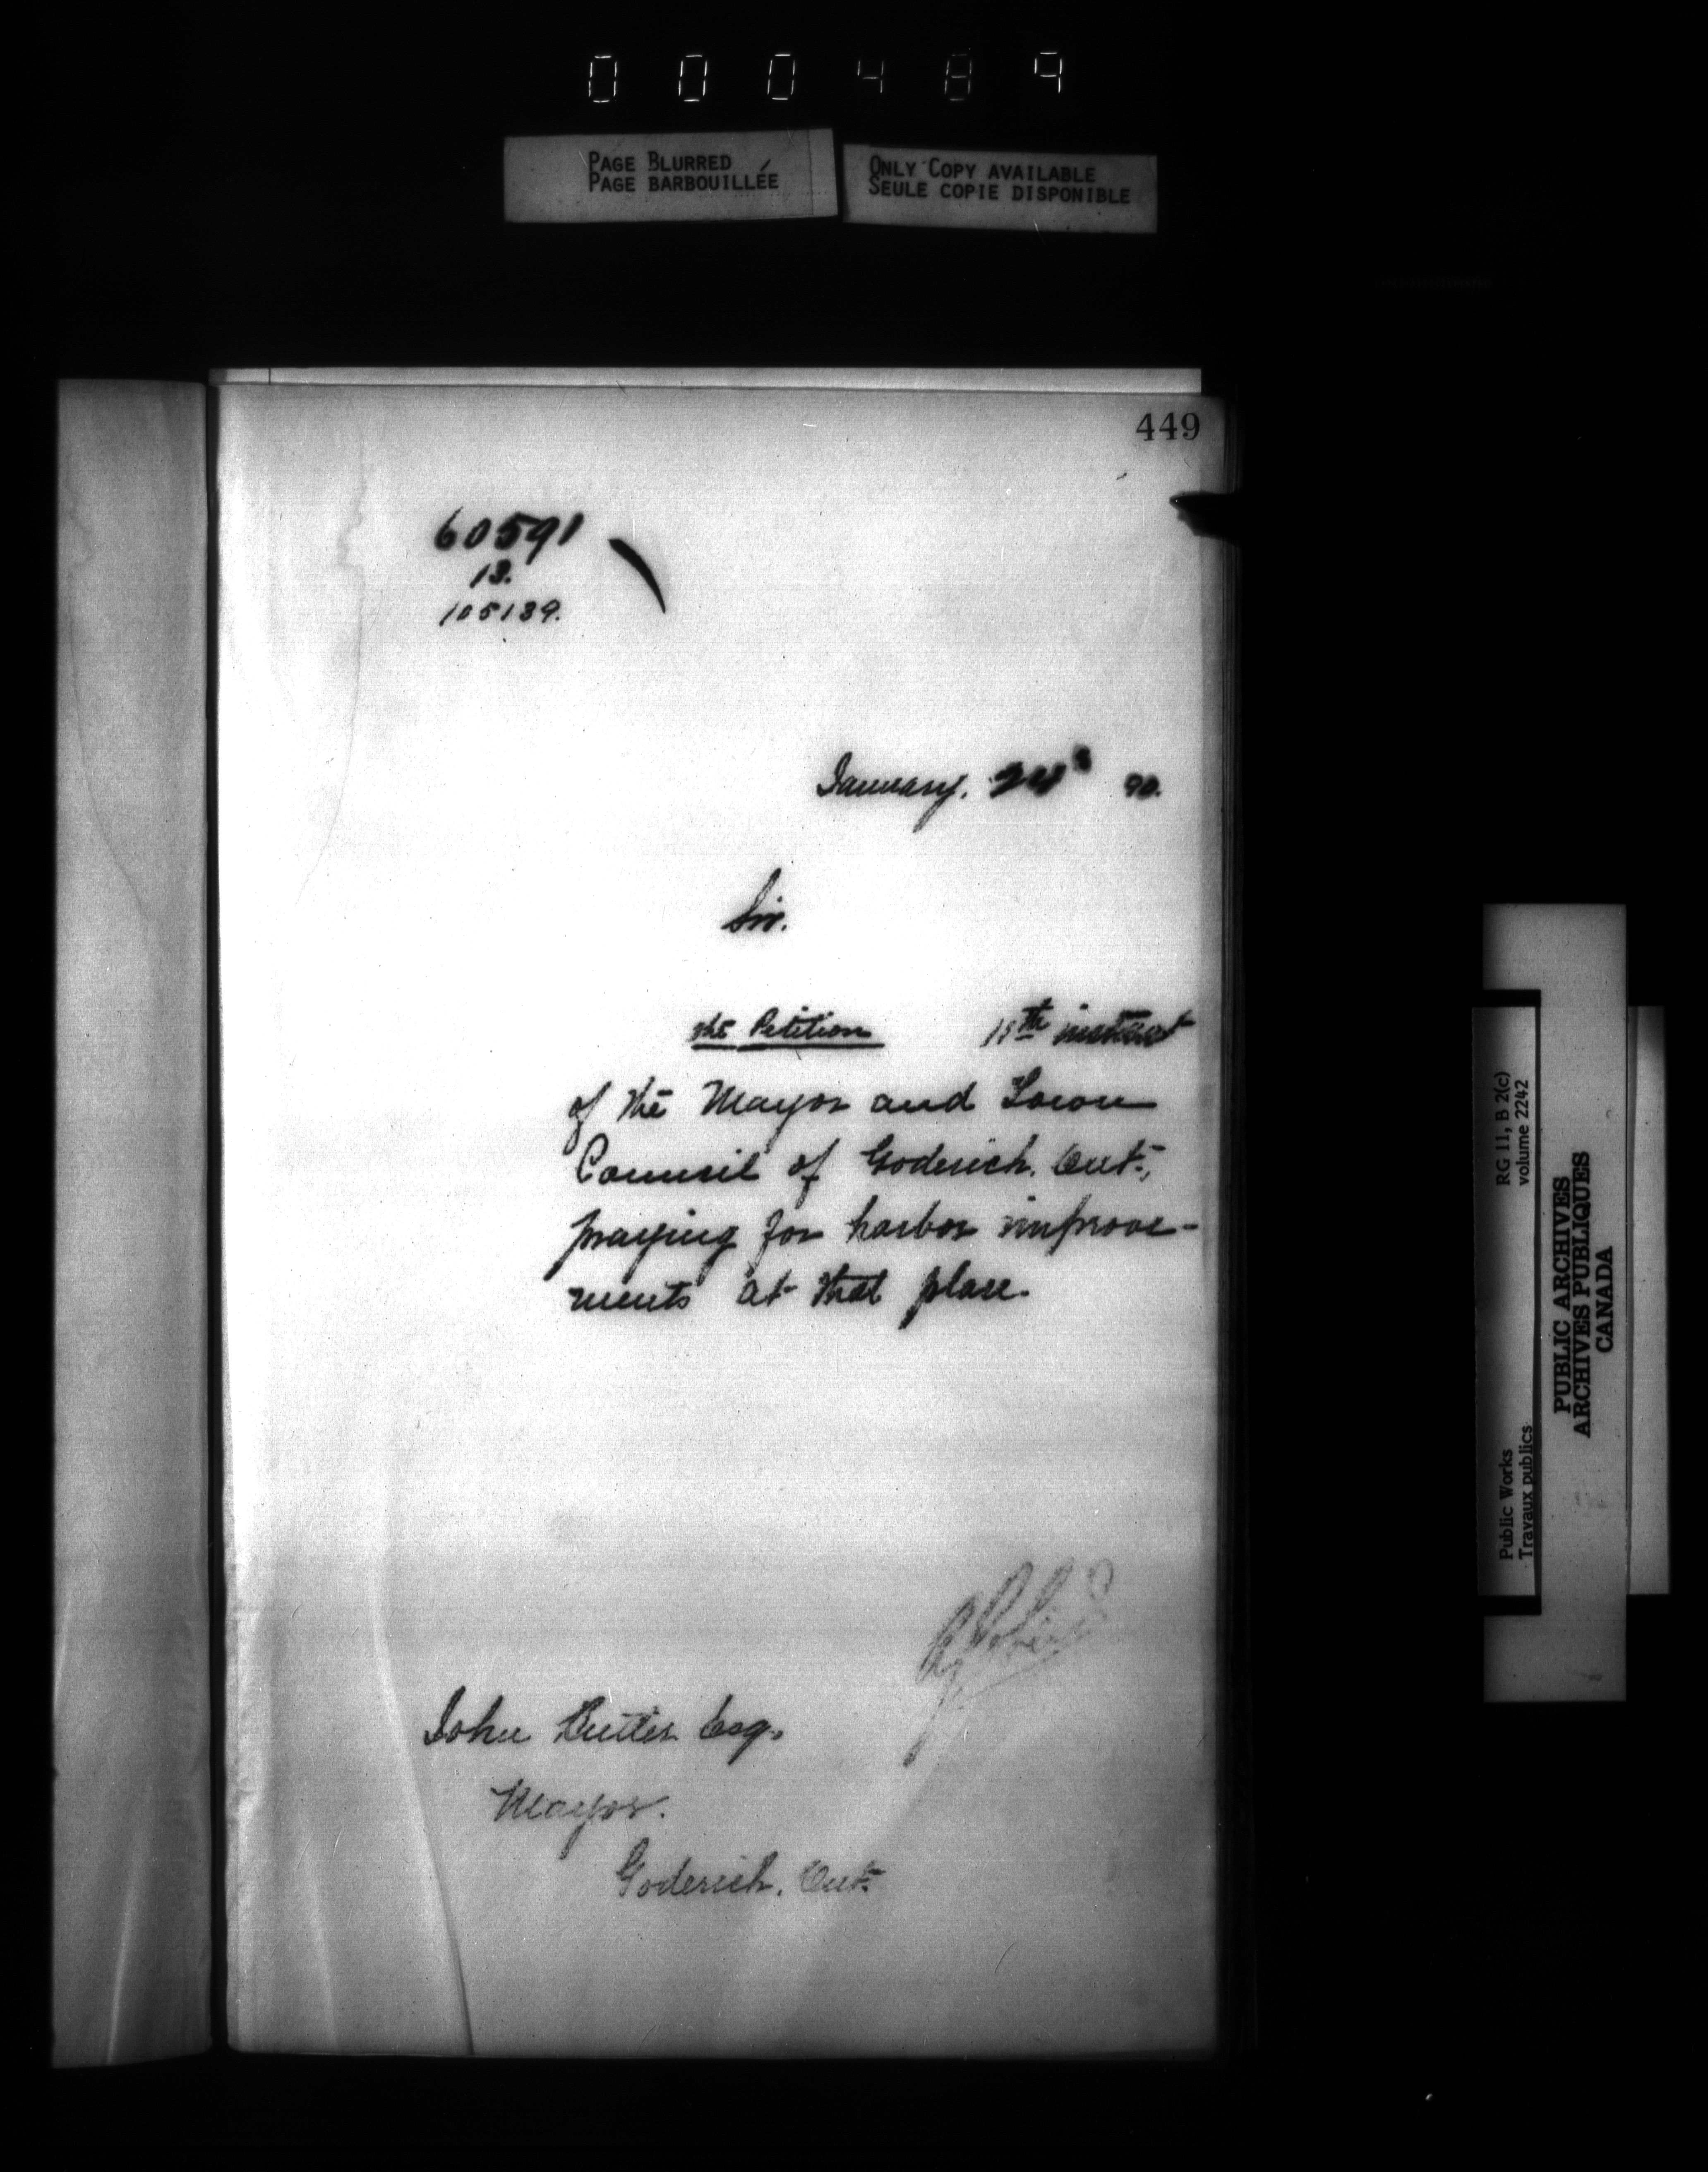 000489
PAGE BLURRED
PAGE BARBOUILLÉE
ONLY COPY AVAILABLE
SEULE COPIE DISPONIBLE
449
60591
13.
105139.
January. 90.
Sir.
The Petition 18th instant
of the Mayor and Town
Council of Goderich. Ont.,
praying for harbor improve-
ments at that place.
John Butler Esq.
Mayor.
Goderich. Ont.
RG 11, B 2(c)
volume 2242
Public Works
Travaux publics
PUBLIC ARCHIVES
ARCHIVES PUBLIQUES
CANADA